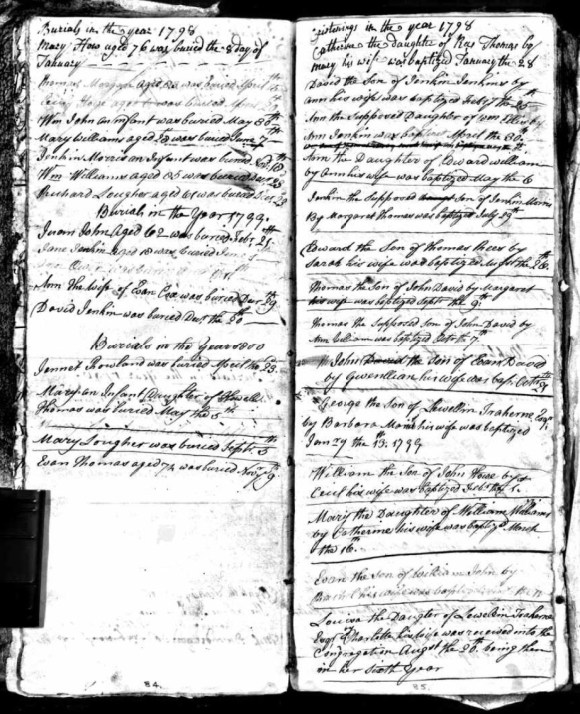 Burials in the year 1798
Mary How aged 76 was buried the 8 day of
January
Thomas Morgan aged was buried April
aged was buried April
Wm John an infant was buried May 30th
Mary Williams aged was buried June 7
Jenkin Morris an Infant was buried
Wm Williams aged 25 was buried
Richard Lougher aged 61 was buried
Burials in the Year 1799
John aged 62 was buried Febr 25th
Jane Jenkin aged 18 was buried
Ann the wife of Evan Cox was buried Decr 29
David Jenkin was buried Decr the 30
Burials in the Year 1800
Jennet Rowland was buried April the 23
Mary an Infant Daughter of Howell
Thomas was buried May the 5th
Mary Lougher was buried Septr 5
Evan Thomas aged 74 was buried Novr 9
84.
Cristenings in the year 1798
Catherin the daughter of Rees Thomas by
Mary his wife was baptized January the 28
David the Son of Jenkin Jenkins by
Ann his wife was baptized Feb the 25
Ann the Supposed Daughter of Wm Ellis by
Ann Jenkin was baptized April the 30th
Ann the Daughter of Edward William
by Ann his wife was baptized May the 6
Jenkin the Supposed Son of Jenkin Morris
By Margaret Thomas was baptized July 29th
Edward the Son of Thomas Rees by
Sarah his wife was baptized August the 26
Thomas the Son of John David by Margaret
his wife was baptized Septr the 9th
Thomas the Supposed Son of John David by
Ann William was baptized Octr 7
John the Son of Evan David
by Gwenllian his wife was bap. Octr
George the Son of Lewellin Traherne Esqr
by Barbara Maria his wife was baptized
Jany the 13. 1799
William the Son of John Howe by
Cecil his wife was Baptized Feb
Mary the Daughter of William Williams
by Catherine his wife was bapt March
the 16.
Evan the Son of William John by
Rachel his wife was baptized
Louisa the Daughter of Lewellin Traherne
Esqr & Charlotte his wife was received into the
Congregation Augst the 26. being then
in her Sixth Year
85.